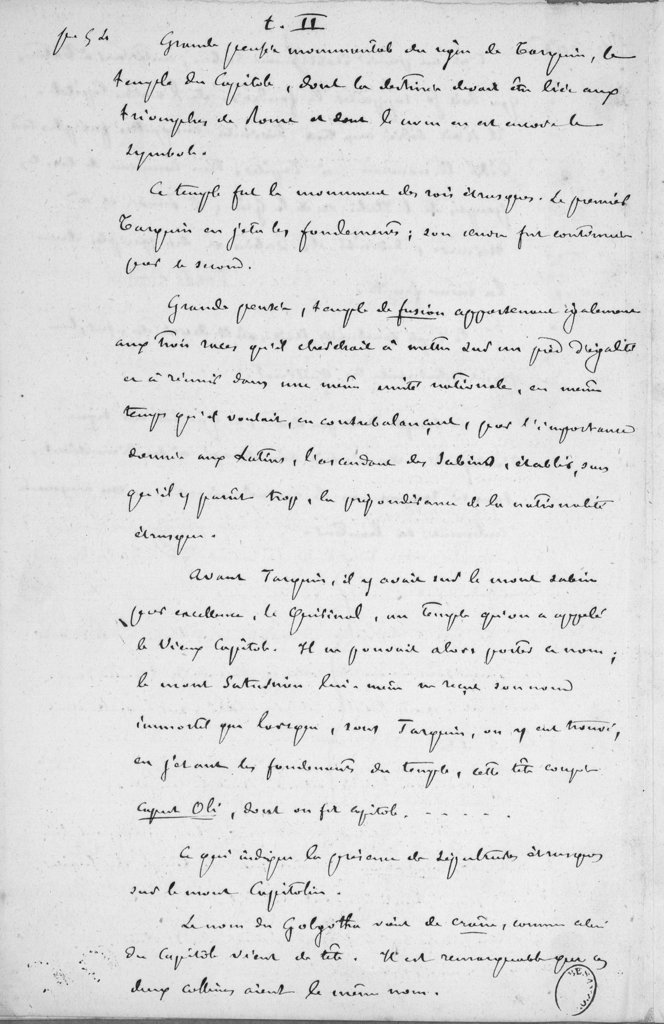 t. II
p. 52 Grande pensée monumentale du règne de Tarquin, le
temple du Capitole, dont la destinée devait être liée aux
triomphes de Rome et dont le nom en est encore le
symbole.
Ce temple fut le monument des rois étrusques. Le premier
Tarquin en jeta les fondements ; son œuvre fut continuée
par le second.
Grande pensée, temple de fusion appartenant également
aux trois races qu'il cherchait à mettre sur un pied d'égalité
et à réunir dans une même unité nationale, en même
temps qu'il voulait, en contrebalançant, par l'importance
donnée aux Latins, l'ascendant des Sabins, établir, sans
qu'il y parût trop, la prépondérance de la nationalité
étrusque.
Avant Tarquin, il y avait sur le mont sabin
par excellence, le Quirinal, un temple qu'on a appelé
le Vieux Capitole. Il ne pouvait alors porter ce nom ;
le mont Saturnien lui-même ne reçut son nom
immortel que lorsque, sous Tarquin, on y eut trouvé,
en jetant les fondements du temple, cette tête coupée
caput Oli, dont on fit capitole. . . . . .
Ce qui indique la présence de sépultures étrusques
sur le mont Capitolin.
Le nom du Golgotha vient de crâne, comme celui
du Capitole vient de tête. Il est remarquable que ces
deux collines aient le même nom.